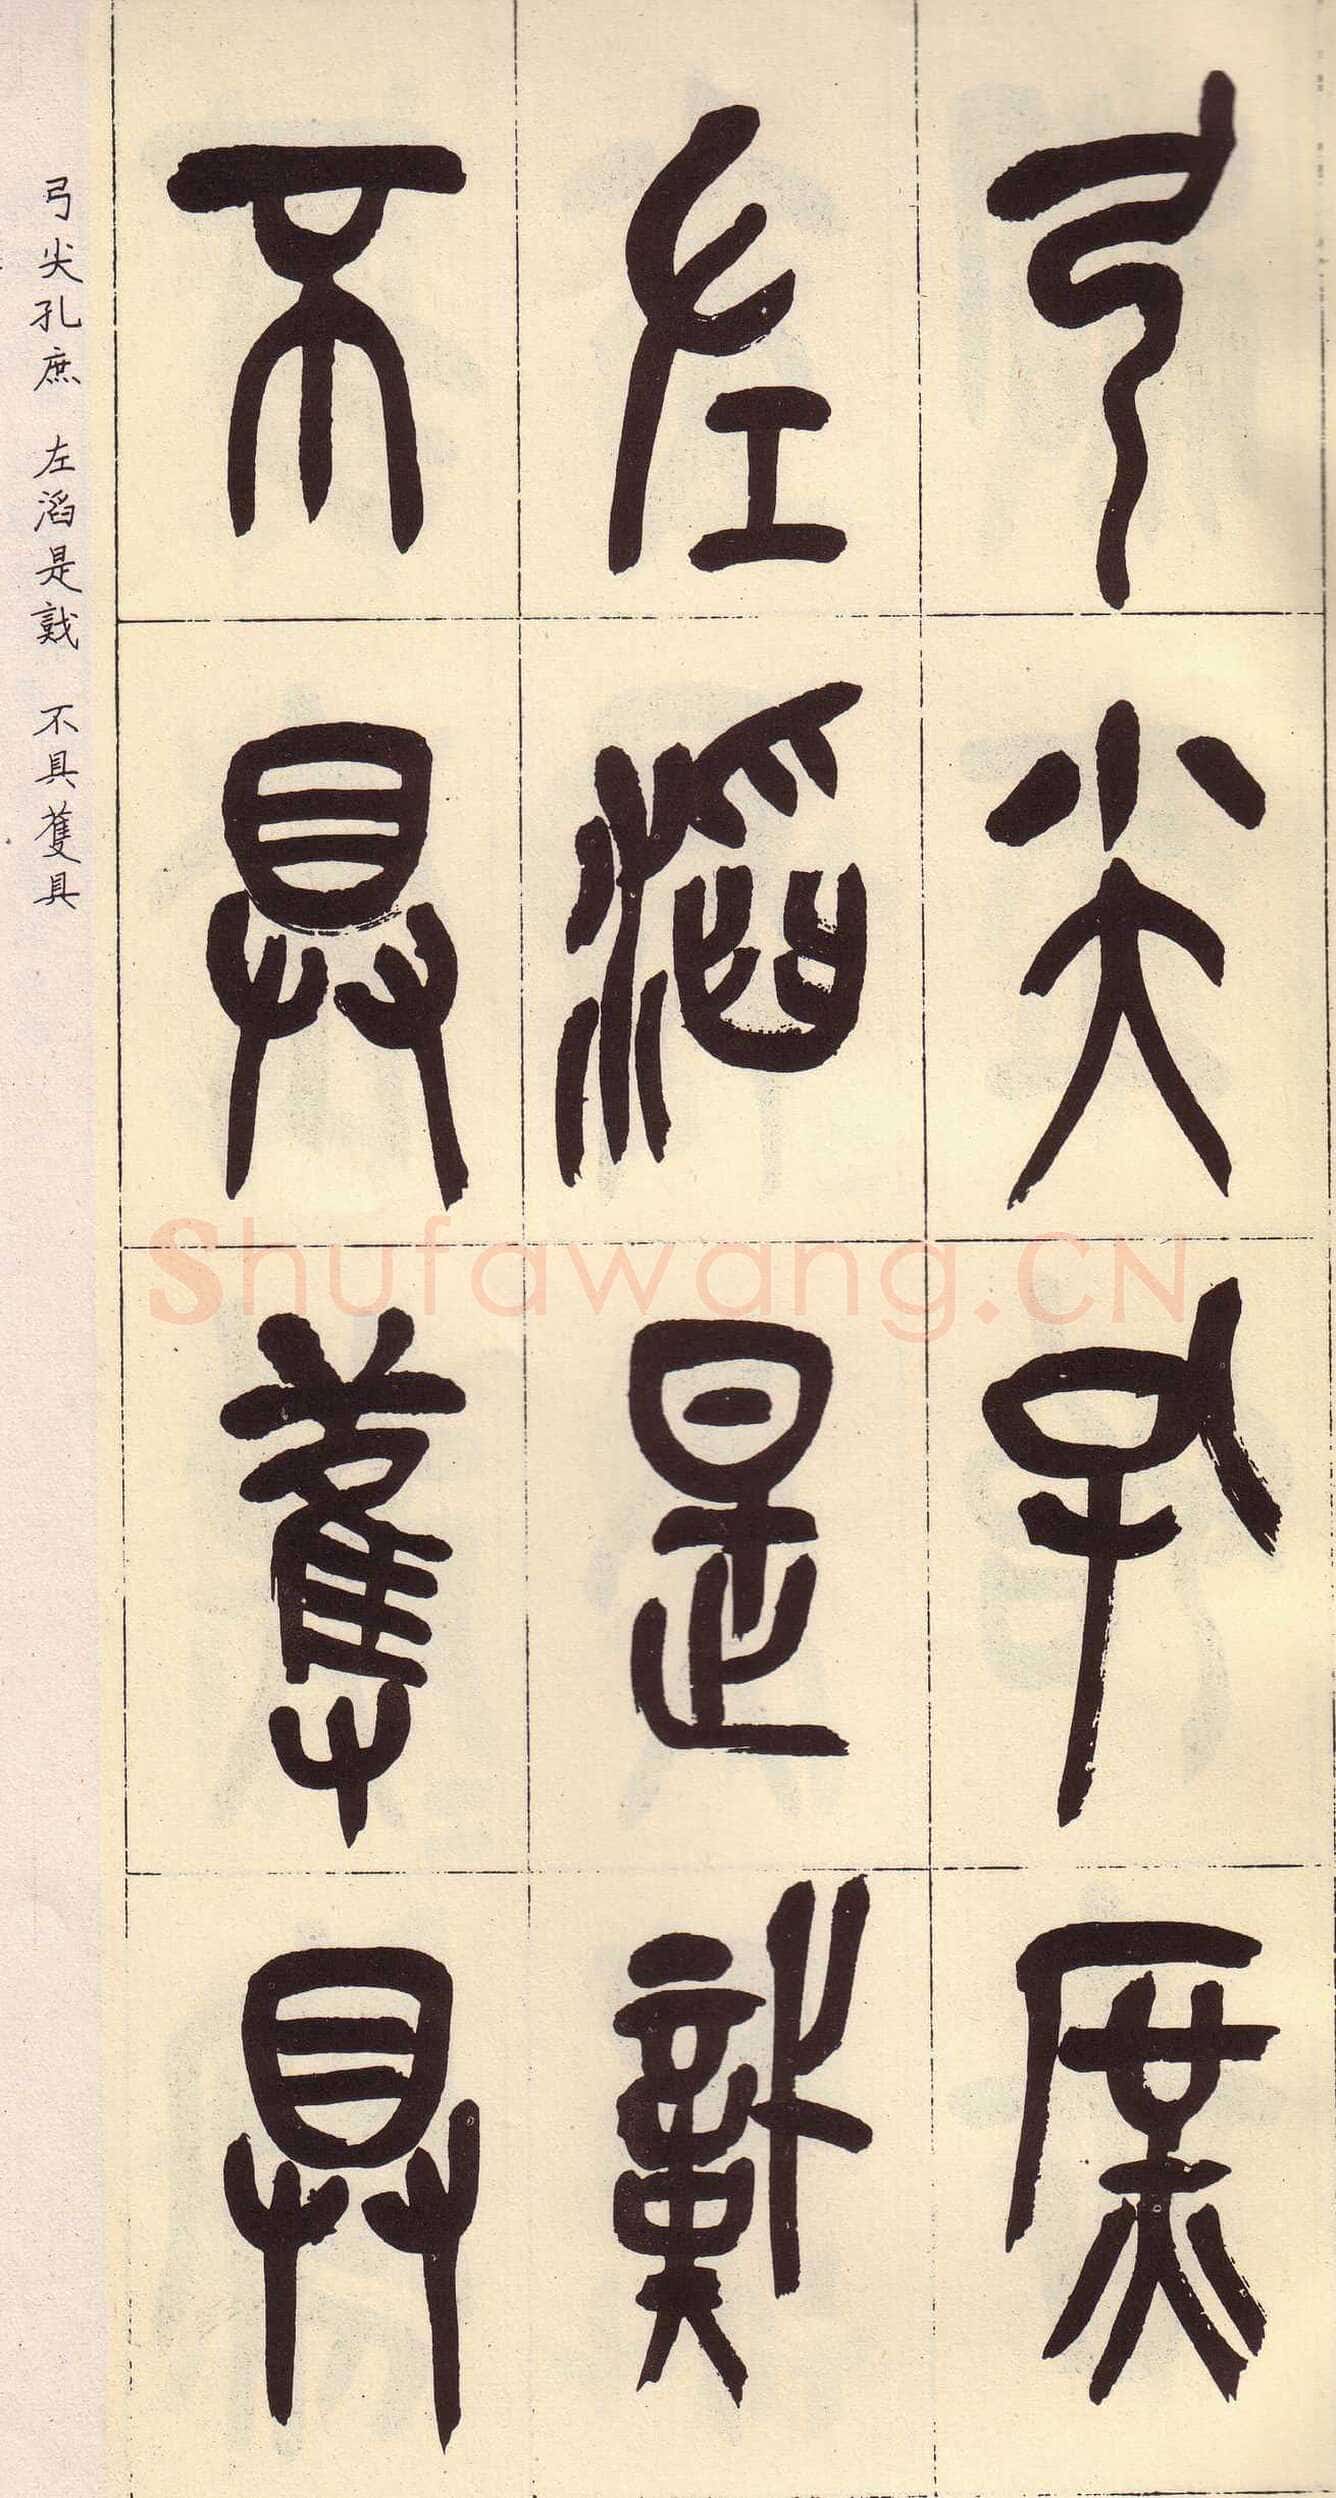 弓尖孔庶
左滔是戡
不具蒦具
弓尖孔庶 左滔是戡 不具蒦具
Shufawang.CN